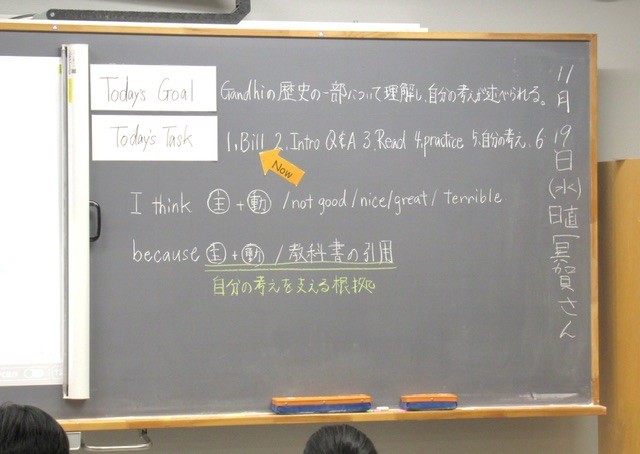 Today's Goal
Gandhiの歴史の一部について理解し、自分の考えが述べられる。
Today's Task
1, Bill 2, Intro Q&A 3, Read 4, practice 5, 自分の考え, 6
Now
I think 主 + 動 / not good / nice / great / terrible
because 主 + 動 / 教科書の引用
自分の考えを支える根拠
11月19日(水) 日直 賀さん